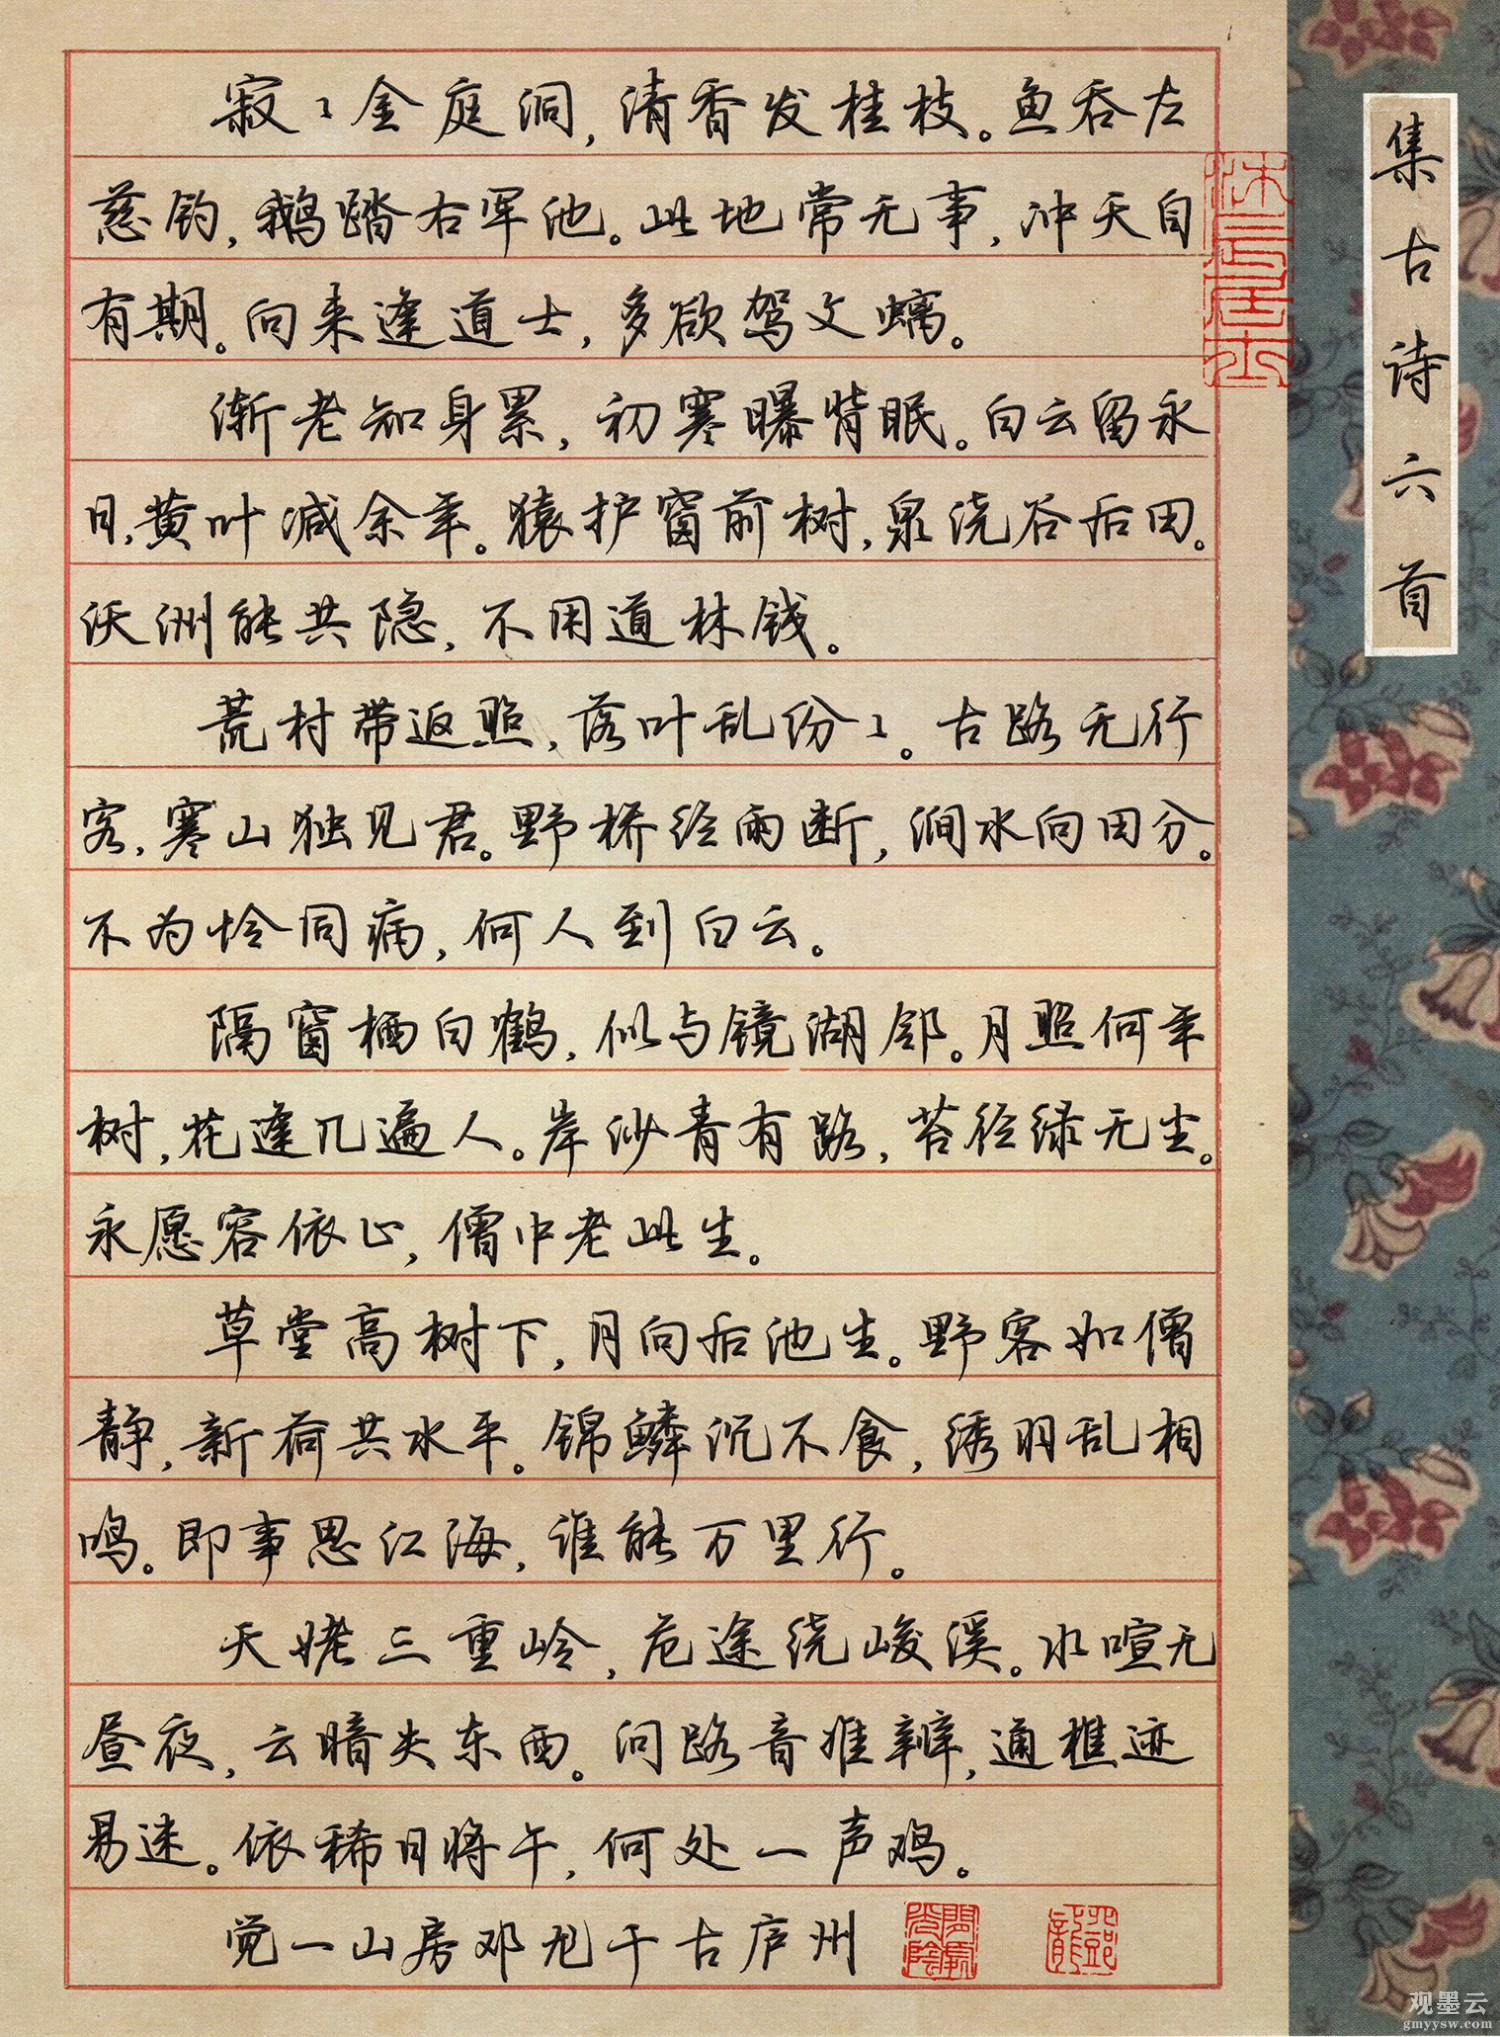 集古诗六首
寂〻金庭洞，清香发桂枝。鱼吞左
慈钓，鹅踏右军池。此地常无事，冲天自
有期。向来逢道士，多欲驾文螭。
渐老知身累，初寒曝背眠。白云留永
日，黄叶减余年。猿护窗前树，泉浇谷后田。
沃洲能共隐，不用道林钱。
荒村带返照，落叶乱纷〻。古路无行
客，寒山独见君。野桥经雨断，涧水向田分。
不为怜同病，何人到白云。
隔窗栖白鹤，似与镜湖邻。月照何年
树，花逢几遍人。岸沙青有路，苔径绿无尘。
永愿容依止，僧中老此生。
草堂高树下，月向后池生。野客如僧
静，新荷共水平。锦鳞沉不食，绣羽乱相
鸣。即事思江海，谁能万里行。
天姥三重岭，危途绕峻溪。水喧无
昼夜，云暗失东西。问路音难辨，通樵迹
易迷。依稀日将午，何处一声鸡。
觉一山房邓龙于古庐州
观墨云
gmyysw.com